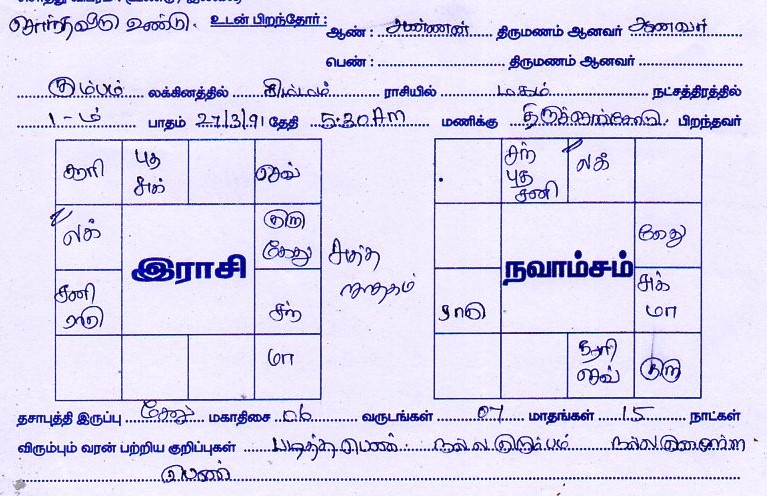 சொந்தவீடு உண்டு. உடன் பிறந்தோர் : ஆண் : அண்ணன் திருமணம் ஆனவர் ஆனவர்
பெண் : திருமணம் ஆனவர்
கும்பம் லக்கினத்தில் சிம்மம் ராசியில் மகம் நட்சத்திரத்தில்
1-ம் பாதம் 27/3/91 தேதி 5:30AM மணிக்கு பிறந்தவர்
சூரி புத சுக் செவ்
லக் குரு கேது
இராசி
சனி ராகு சந்
மா
சுத்த ஜாதகம்
சந் புத சனி லக்
கேது
நவாம்சம்
ராகு சுக் மா
சூரி செவ் குரு
தசாபுத்தி இருப்பு கேது மகாதிசை 06 வருடங்கள் 07 மாதங்கள் 15 நாட்கள்
விரும்பும் வரன் பற்றிய குறிப்புகள் படித்த பெண் நல்ல குடும்பம் நல்ல
பெண்